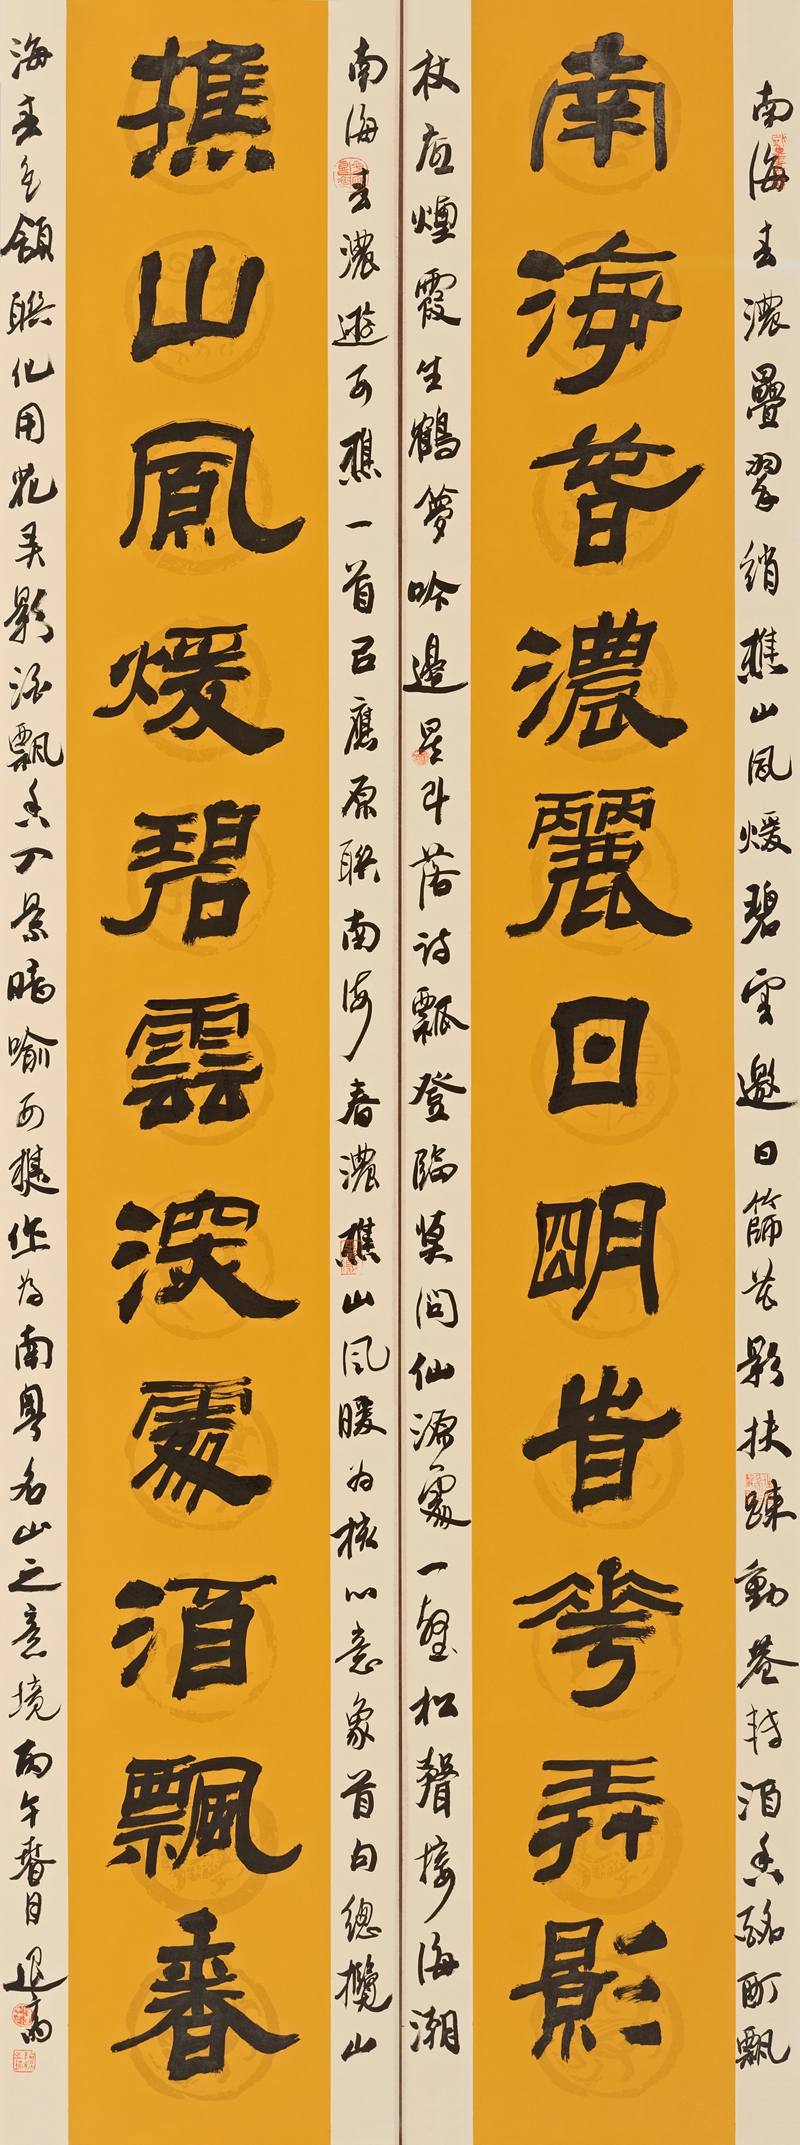 南海春濃疊翠綃樵山風煖碧雲邀日篩花影扶疎動巷轉酒香酩酊飄
南海萅濃麗日明旹華弄影
杖底煙霞生鶴夢吟邊星斗落詩瓢登臨莫問仙源處一壑松聲接海潮
南海春濃遊西樵一首以應原聯南海春濃樵山風暖為核心意象首句總攬山
樵山風煖碧雲深處酒飄香
海春色頷聯化用花弄影酒飄香入景暗喻西樵作為南粵名山之意境丙午春日退